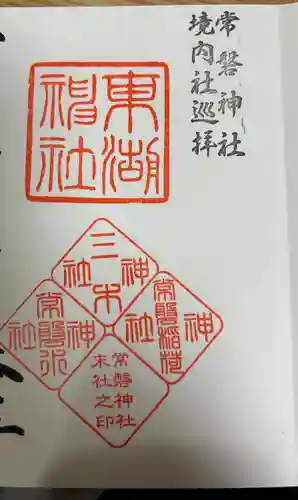 常磐神社
境内社巡拝
東湖
神社
三木
神社
常磐稲荷
神社
常磐水
神社
常磐神社
末社之印